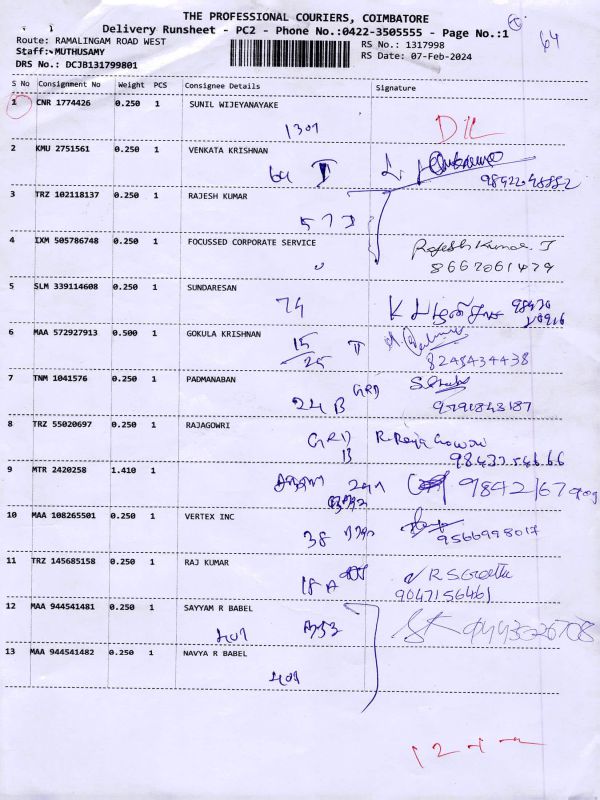 THE PROFESSIONAL COURIERS, COIMBATORE
Delivery Runsheet - PC2 - Phone No.:0422-3505555 - Page No.:1
64
Route: RAMALINGAM ROAD WEST
RS No.: 1317998
Staff:-MUTHUSAMY
RS Date: 07-Feb-2024
DRS No.: DCJB131799801
S No Consignment No Weight PCS Consignee Details Signature
1 CNR 1774426 0.250 1 SUNIL WIJEYANAYAKE
1301 DIL
2 KMU 2751561 0.250 1 VENKATA KRISHNAN
3 TRZ 102118137 0.250 1 RAJESH KUMAR
57 I
4 IXM 505786748 0.250 1 FOCUSSED CORPORATE SERVICE
Rajesh Kumar. J
8667061479
5 SLM 339114608 0.250 1 SUNDARESAN
74
6 MAA 572927913 0.500 1 GOKULA KRISHNAN
15/25
8248434438
7 TNM 1041576 0.250 1 PADMANABAN
GRD
24 B 9791843187
8 TRZ 55020697 0.250 1 RAJAGOWRI
GRD R. Raja Gowri
B
9 MTR 2420258 1.410 1
10 MAA 108265501 0.250 1 VERTEX INC
38 9566998017
11 TRZ 145685158 0.250 1 RAJ KUMAR
18 A R S Geetha
9047156461
12 MAA 944541481 0.250 1 SAYYAM R BABEL
13 MAA 944541482 0.250 1 NAVYA R BABEL